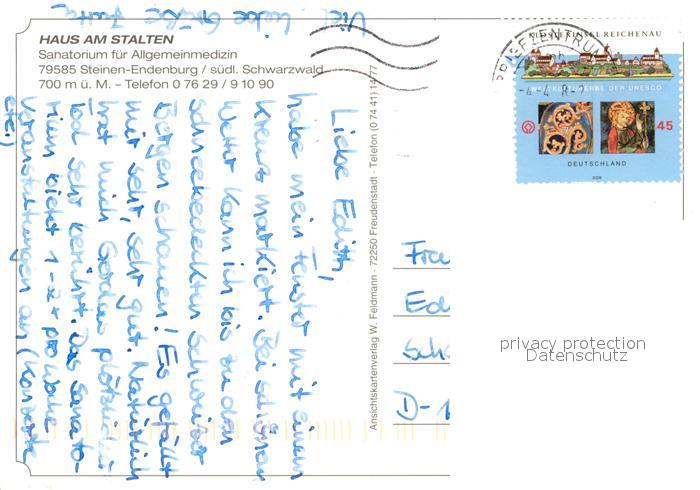 HAUS AM STALTEN
Sanatorium für Allgemeinmedizin
79585 Steinen-Endenburg / südl. Schwarzwald
700 m ü. M. – Telefon 0 76 29 / 9 10 90
Liebe Edith,
habe mein Fenster mit einem
Kreuz markiert. Bei schönem
Wetter kann ich bis zu den
schneebedeckten Schweizer
Bergen schauen! Es gefällt
mir sehr, sehr gut. Natürlich
hat mich Gerdas plötzlicher
Tod sehr berührt. Das Sanato-
rium bietet 1-2x pro Woche
Veranstaltungen an (Konzerte
etc.)
Viel liebe Grüße
Ansichtskartenverlag W. Feldmann · 72250 Freudenstadt · Telefon (0 74 41) 14 77
BRIEFZENTRUM
KLOSTERINSEL REICHENAU
WELTKULTURERBE DER UNESCO
45
DEUTSCHLAND
2008
Frau
Ed
Sch
D-1
privacy protection
Datenschutz